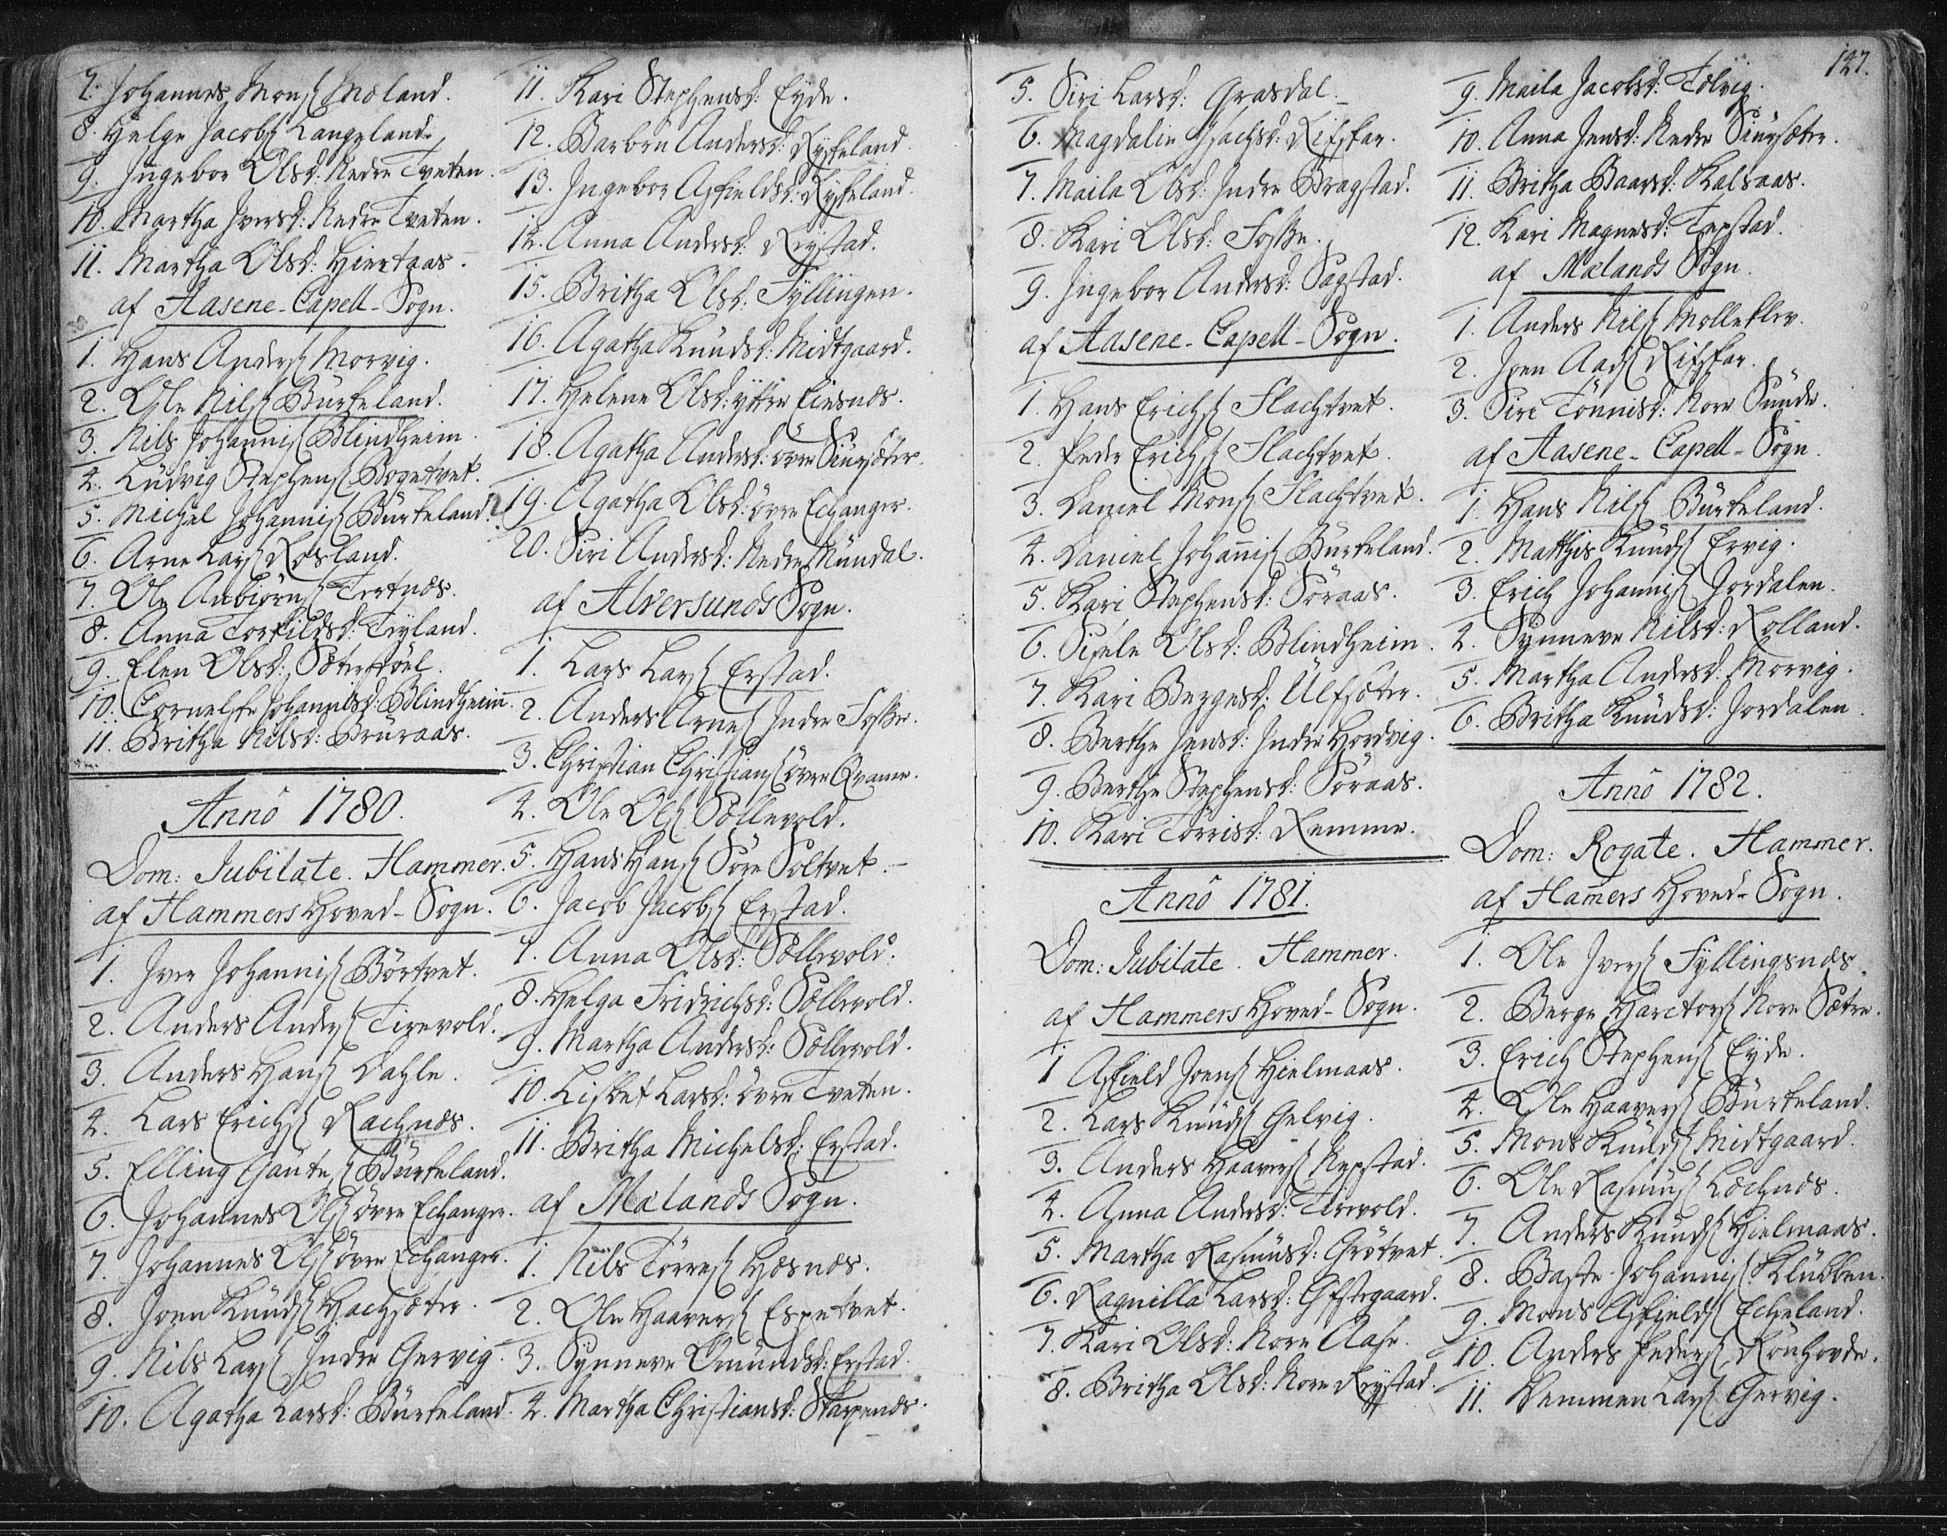 7. Johannes Mons. Moland.
8. Helge Jacobs. Langeland.
9. Ingebor Olsd: Nedre Tveten.
10. Martha Iversd: Nedre Tveten.
11. Martha Olsd: Hiertaas.
af Aasene-Capell-Sogn.
1. Hans Anders. Morvig.
2. Ole Nils. Bürkeland.
3. Nils Johannis. Blindheim.
4. Lüdvig Stephens. Bogetvet.
5. Michel Johannis. Bürkeland.
6. Arne Lars. Rosland.
7. Ole Anbiörns. Tertnæs.
8. Anna Torkildsd: Tryland.
9. Elen Olsd: Sæterstöel.
10. Cornelse Johannesd: Blindheim.
11. Britha Nilsd: Brüraas.
Anno 1780.
Dom: Jubilate. Hammer.
af Hammers Hoved-Sogn.
1. Iver Johannis. Börtvet.
2. Anders Anders. Tirevold.
3. Anders Hans. Dahle.
4. Lars Erichs. Rachnæs.
5. Elling Gaute. Bürkeland.
6. Johannes Ols. övre Echanger.
7. Johannes Ols. övre Echanger.
8. Joen Knüds. Hachsæter.
9. Nils Lars. Indre Gervig.
10. Agatha Larsd: Bürkeland.
11. Kari Stephensd: Eyde.
12. Barbra Andersd: Rykeland.
13. Ingebor Asfieldsd: Rykeland.
14. Anna Andersd: Rystad.
15. Britha Olsd: Fyllingen.
16. Agatha Knudsd: Midtgaard.
17. Helene Olsd: yttre Eiesnæs.
18. Agatha Andersd: övre Einsæter.
19. Agatha Olsd: övre Echanger.
20. Siri Andersd: Nedre Mündal.
af Alversunds Sogn.
1. Lars Lars. Erstad.
2. Anders Arnes. Indre Foske.
3. Christian Christians. övre Qvamme.
4. Ole Ols. Sællevold.
5. Hans Hans. Söre Soltvet.
6. Jacob Jacobs. Erstad.
7. Anna Olsd: Sællevold.
8. Helga Fridrichsd: Sællevold.
9. Martha Andersd: Sællevold.
10. Lisbet Larsd: övre Tveten.
11. Britha Michelsd: Erstad.
af Mælands Sogn.
1. Nils Törres. Hæsnæs.
2. Ole Haavers. Espetvet.
3. Synneve Omündsd: Erstad.
4. Martha Christiansd: Skarpenæs.
127.
5. Siri Larsd: Grasdal.
6. Magdalin Isachsd: Rifskar.
7. Maila Olsd: Indre Bragstad.
8. Kari Olsd: Foske.
9. Ingebor Andersd: Sagstad.
af Aasene-Capell-Sogn.
1. Hans Erichs. Flachtvet.
2. Peder Erichs. Flachtvet.
3. Daniel Mons. Flachtvet.
4. Daniel Johannis. Bürkeland.
5. Kari Stephensd: Söraas.
6. Sisele Olsd: Blindheim.
7. Kari Bergesd: Ülfsæter.
8. Berthe Jensd: Indre Hordvig.
9. Berthe Stephensd: Söraas.
10. Kari Törrisd: Remme.
Anno 1781.
Dom: Jubilate. Hammer.
af Hammers Hoved-Sogn.
1 Asfield Joens. Hielmaas.
2. Lars Knüds. Gelvig.
3. Anders Haavers. Repstad.
4. Anna Andersd: Tirevold.
5. Martha Rasmüsd: Grötvet.
6. Ragnilla Larsd: Ofstegaard.
7. Kari Olsd: Nore Aase.
8. Britha Olsd: Nore Rystad.
9. Maila Jacobsd: Tolvig.
10. Anna Jensd: Nedre Einsæter.
11. Britha Baarsd: Kalsaas.
12. Kari Magnesd: Tepstad.
af Mælands Sogn.
1. Anders Nils. Molleklev.
2. Joen Aads. Rifskar.
3. Siri Tönnisd: Nore Sünde.
af Aasene-Capell-Sogn.
1. Hans Nils. Bürkeland.
2. Matthis Knüds. Ervig.
3. Erich Johannis. Jordalen.
4. Synneve Nilsd: Rolland.
5. Martha Andersd: Morvig.
6. Britha Knüdsd: Jordalen.
Anno 1782.
Dom: Rogate. Hammer.
af Hamers Hoved-Sogn.
1. Ole Ivers. Fyllingsnæs.
2. Berge Harctors. Nore Sætre.
3. Erich Stephens. Eyde.
4. Ole Haavers. Bürkeland.
5. Mons Knüds. Midtgaard.
6. Ole Rasmüs. Lochnæs.
7. Anders Knüds. Hielmaas.
8. Baste Johannis. Klübben.
9. Mons Asfields. Echeland.
10. Anders Peders. Rönhovde.
11. Vemmen Lars. Gervig.